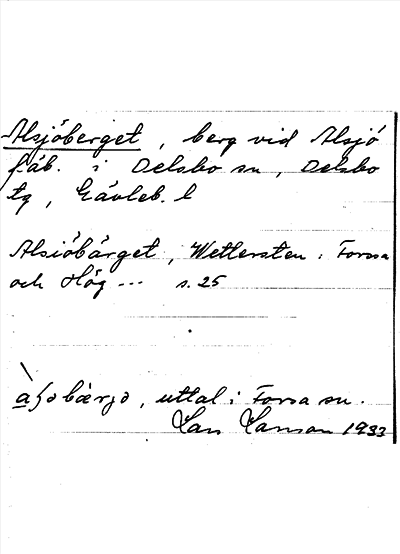 Alsjöberget, berg vid Alsjö
fäb. i Delsbo sn, Delsbo
tg, Gävleb. l
Alsiöbärget, Wettersten: Forssa
och Hög --- s. 25
àʃobærjo, uttal i Forsa sn.
Lars Larsson 1933